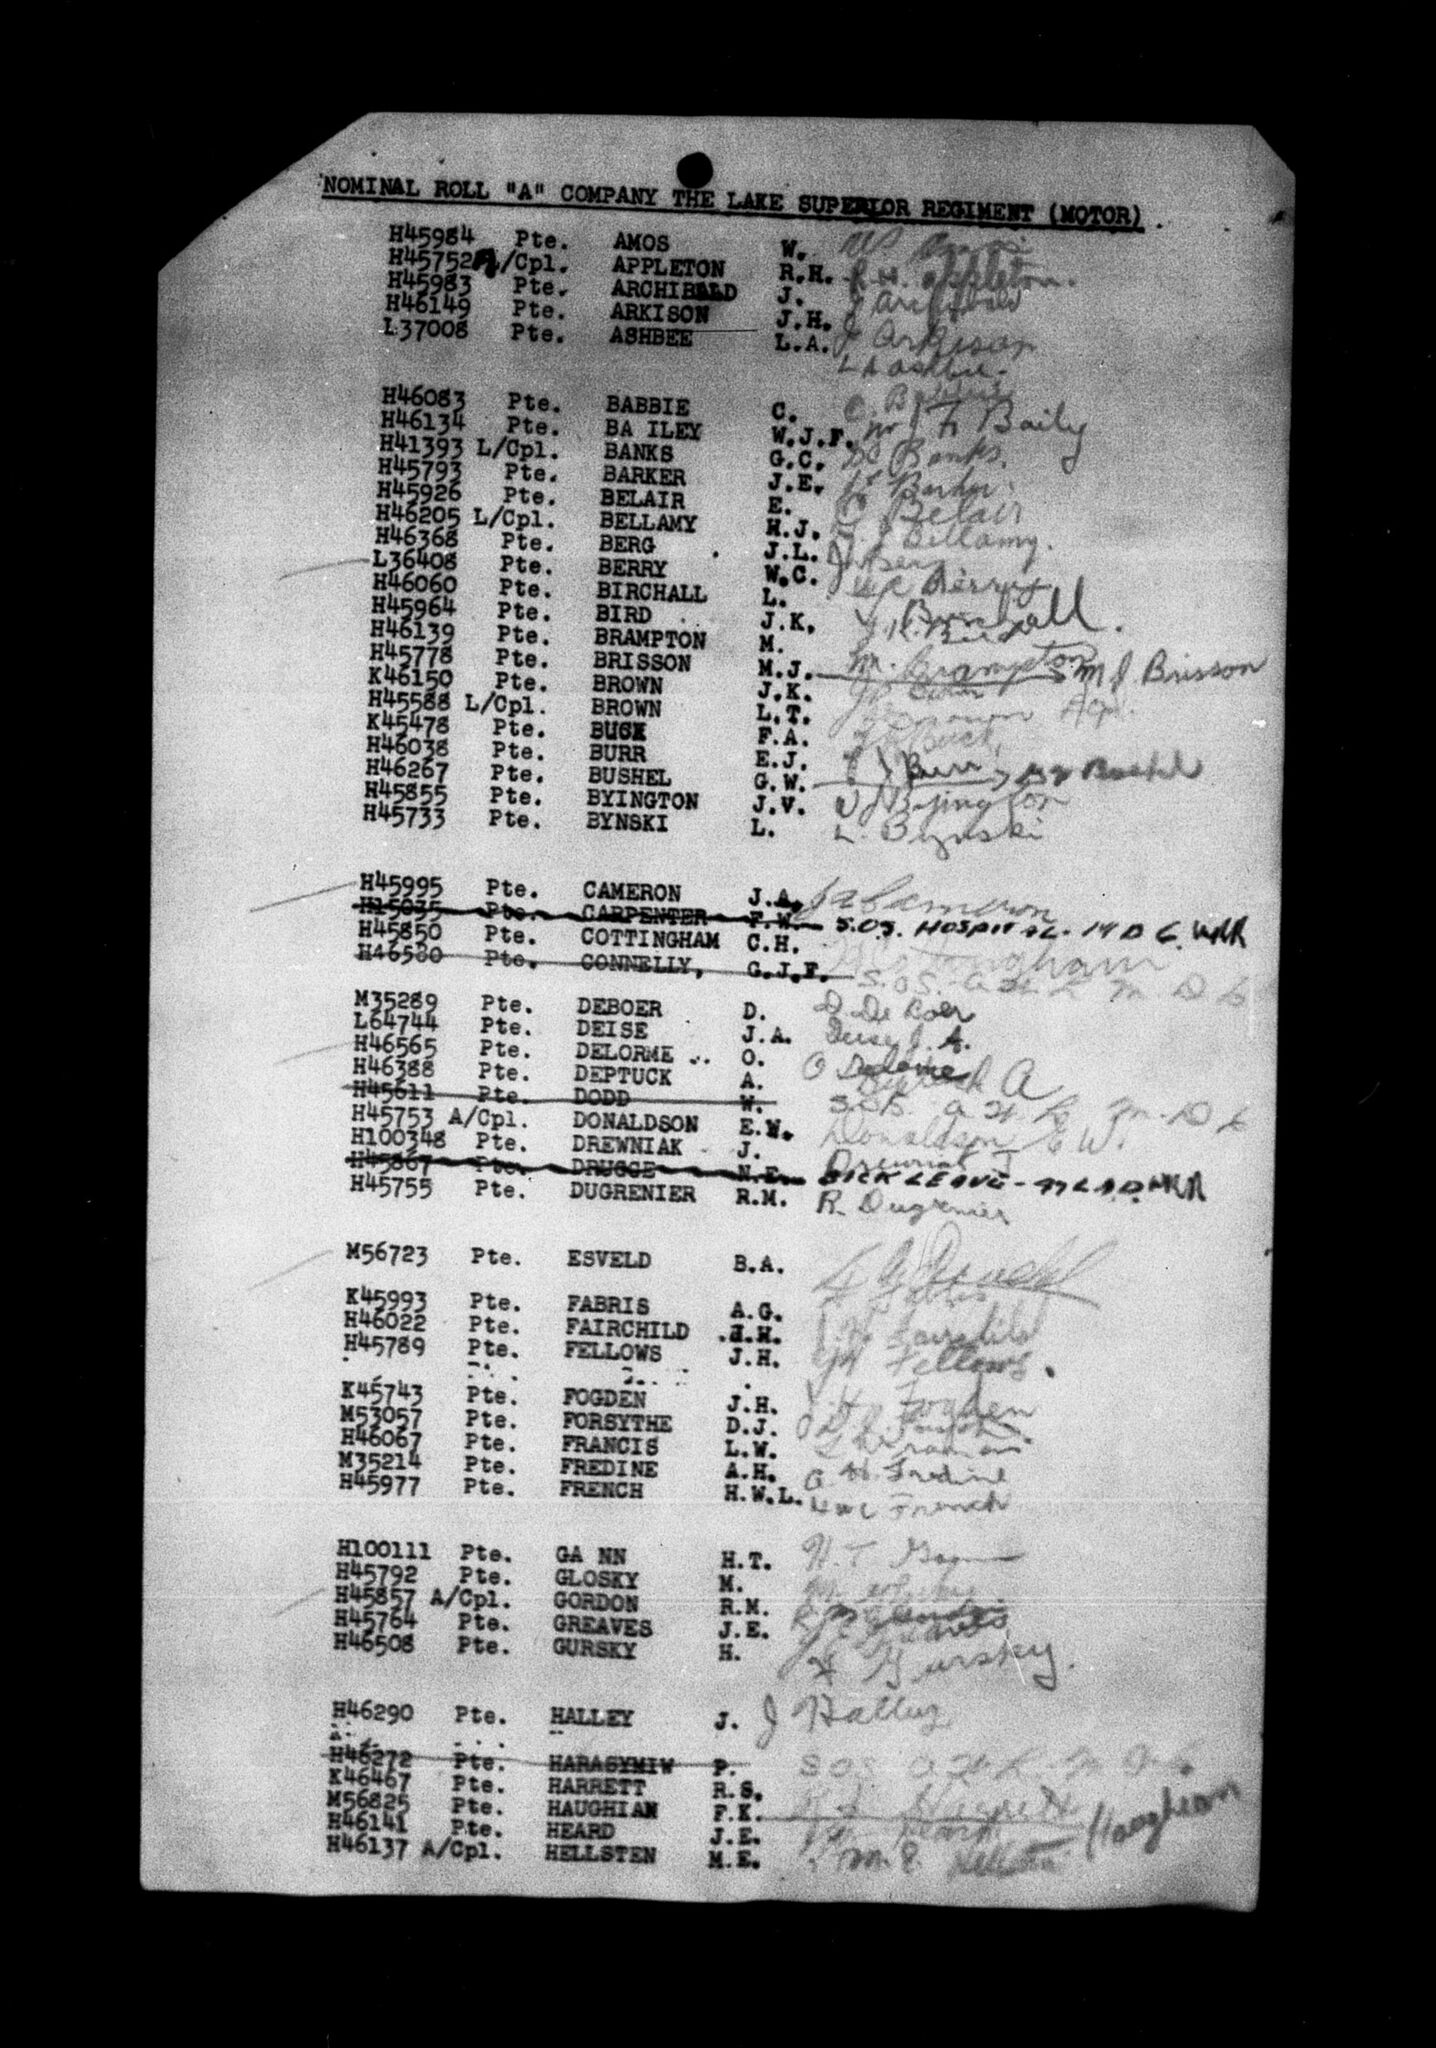 NOMINAL ROLL "A" COMPANY THE LAKE SUPERIOR REGIMENT (MOTOR).
H45984 Pte. AMOS W.
H45752 A/Cpl. APPLETON R.H. R.H. Appleton.
H45983 Pte. ARCHIBALD J. J Archibald
H46149 Pte. ARKISON J.H. J Arkison
L37008 Pte. ASHBEE L.A. L A Ashbee.
H46083 Pte. BABBIE C. C.
H46134 Pte. BA ILEY W.J.F. W J F Baily
H41393 L/Cpl. BANKS G.C. Banks.
H45793 Pte. BARKER J.E. Barker.
H45926 Pte. BELAIR E. E Belair
H46205 L/Cpl. BELLAMY H.J. H. J Bellamy.
H46368 Pte. BERG J.L. J L Berg
L36408 Pte. BERRY W.C. W C Berry
H46060 Pte. BIRCHALL L. L Birchall.
H45964 Pte. BIRD J.K. J. K. Bird
H46139 Pte. BRAMPTON M. M. Brampton
H45778 Pte. BRISSON M.J. M J Brisson
K46150 Pte. BROWN J.K.
H45588 L/Cpl. BROWN L.T. Brown
K45478 Pte. BUCK F.A. F A Buck
H46038 Pte. BURR E.J. E J Burr
H46267 Pte. BUSHEL G.W. Bushel
H45855 Pte. BYINGTON J.V. J V Byington
H45733 Pte. BYNSKI L. L. Bynski
H45995 Pte. CAMERON J.A. J A Cameron
H15035 Pte. CARPENTER F.W. S.O.S. HOSPITAL.
H45850 Pte. COTTINGHAM C.H. Cottingham
H46580 Pte. CONNELLY, G.J.F. S.O.S.
M35289 Pte. DEBOER D. D De Boer
L64744 Pte. DEISE J.A. Deise J. A.
H46565 Pte. DELORME O. O Delorme
H46388 Pte. DEPTUCK A. Deptuck A
H45611 Pte. DODD W. S.O.S.
H45753 A/Cpl. DONALDSON E.W. Donaldson E W.
H100348 Pte. DREWNIAK J. Drewniak J
H45867 Pte. DRUGGE N.E. SICK LEAVE
H45755 Pte. DUGRENIER R.M. R. Dugrenier
M56723 Pte. ESVELD B.A.
K45993 Pte. FABRIS A.G. Fabris
H46022 Pte. FAIRCHILD J.H. J. H. Fairchild
H45789 Pte. FELLOWS J.H. J H Fellows.
K45743 Pte. FOGDEN J.H. J. H. Fogden
M53057 Pte. FORSYTHE D.J. D J Forsythe
H46067 Pte. FRANCIS L.W. L W Francis
M35214 Pte. FREDINE A.H. A. H. Fredine
H45977 Pte. FRENCH H.W.L. H W L French
H100111 Pte. GA NN H.T. H. T. Gann
H45792 Pte. GLOSKY M. M. Glosky
H45857 A/Cpl. GORDON R.M. R M Gordon
H45764 Pte. GREAVES J.E. J E Greaves
H46508 Pte. GURSKY H. H Gursky.
H46290 Pte. HALLEY J. J Halley
H46272 Pte. HARASYMIW P. S O S
K46467 Pte. HARRETT R.S. R S Harrett
M56825 Pte. HAUGHIAN F.K. Haughian
H46141 Pte. HEARD J.E. J E Heard
H46137 A/Cpl. HELLSTEN M.E. M. E. Hellsten